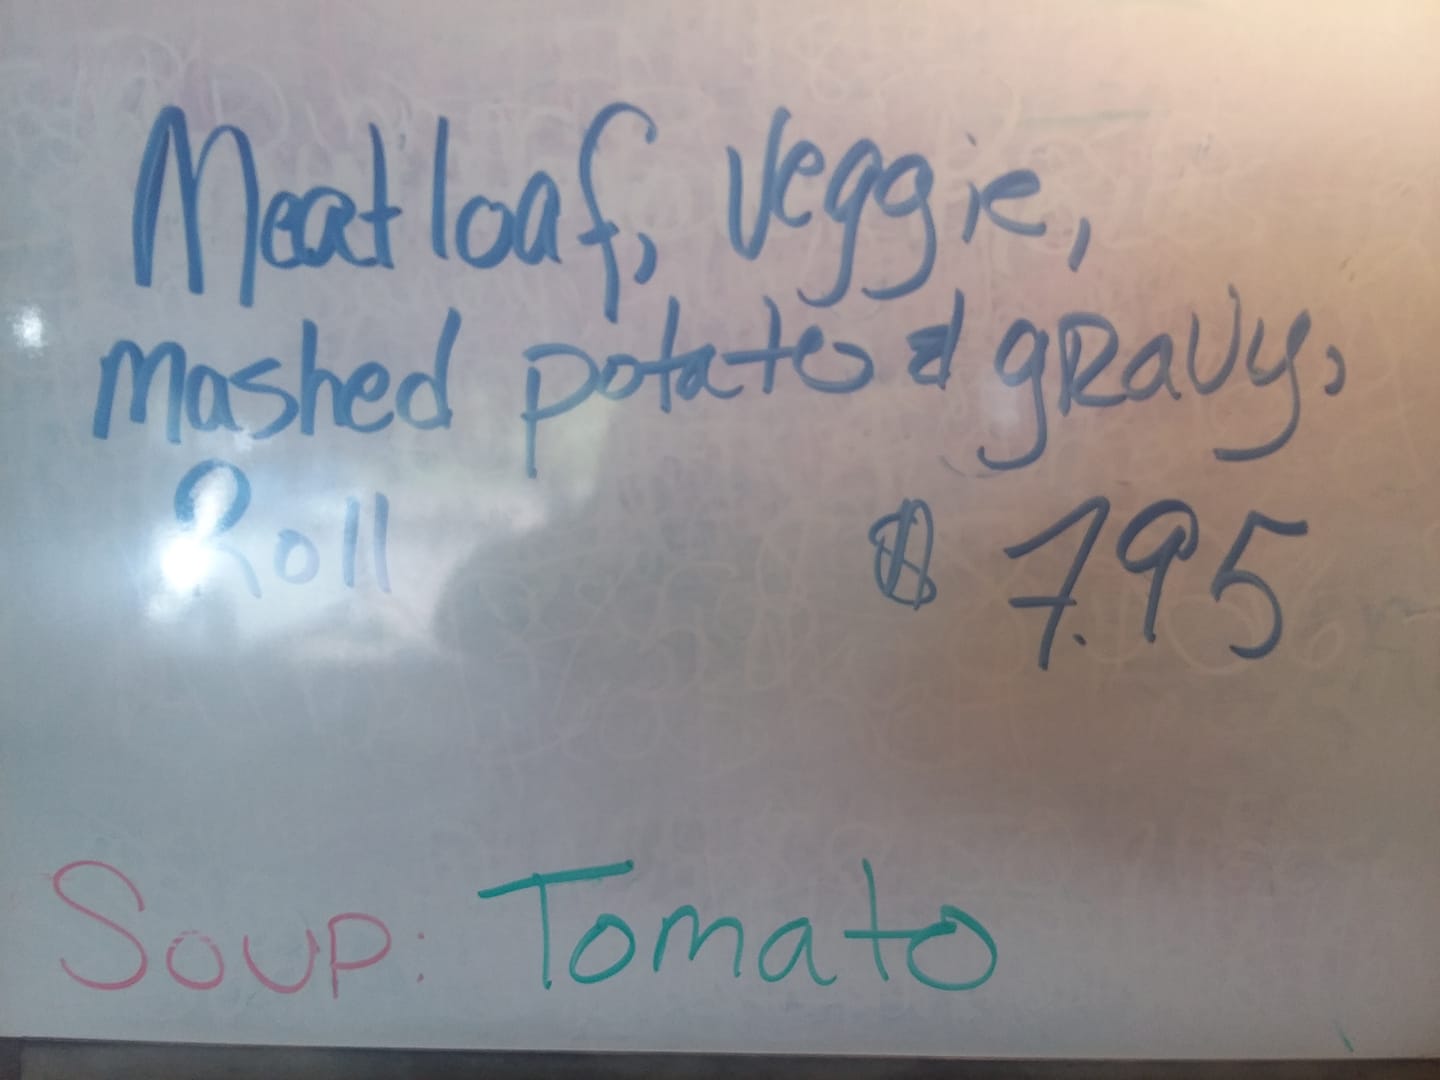 Meatloaf, Veggie,
mashed potato & gravy,
Roll $ 7.95
Soup: Tomato